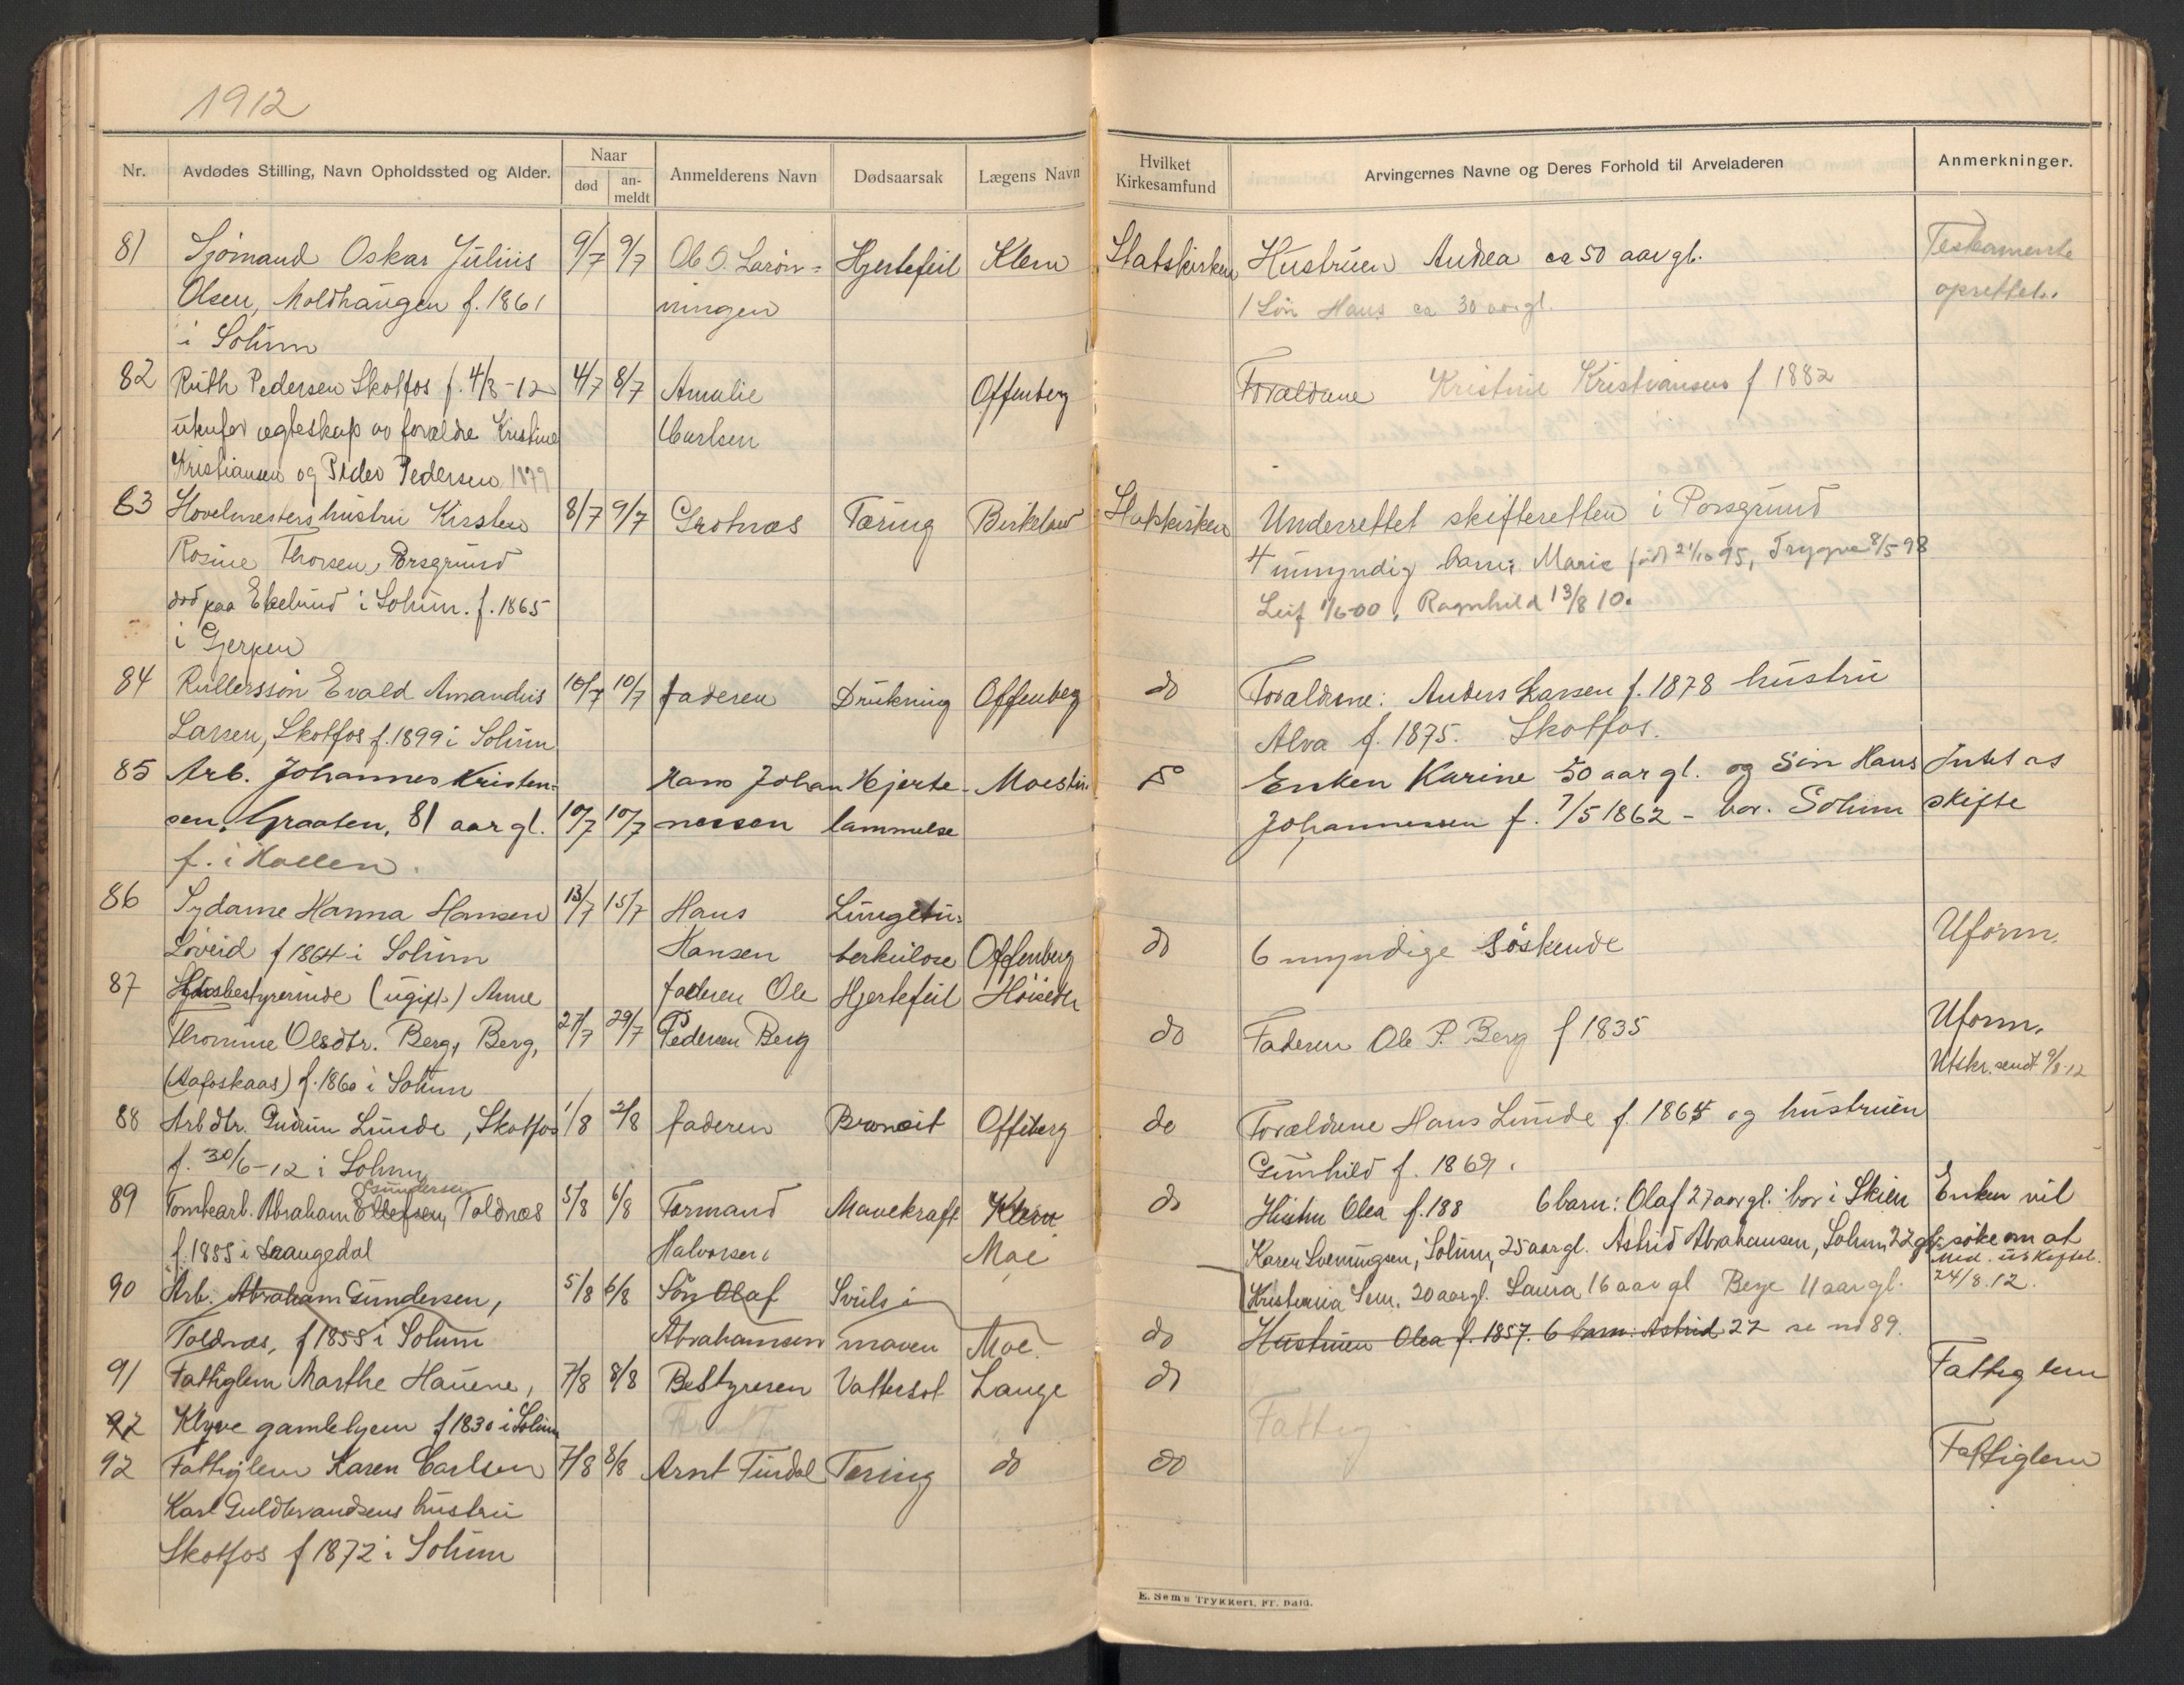 1912
Nr. Avdødes Stilling, Navn Opholdssted og Alder. Naar død an-meldt Anmelderens Navn Dødsaarsak Lægens Navn Hvilket Kirkesamfund Arvingernes Navne og Deres Forhold til Arveladeren Anmerkninger.
81 Sjömand Oskar Julius 9/7 9/7 Ole O. Hjertefeil Klem Statskirken Hustruen Andrea ca 50 aar gl. Testamente
Olsen, Moldhaugen f. 1861 ningen 1 Sön Hans ca 30 aar gl. oprettet.
i Solum
82 Ruth Pedersen Skotfos f. 4/3-12 4/7 8/7 Amalie Offenberg Forældrene Kristine Kristiansen f 1882
utenfor egteskap av forældre Kristine Carlsen
Kristiansen og Peder Pedersen 1879
83 Hovelmesters hustru Kirsten 8/7 9/7 Grotnæs Tæring Birkeland Statskirken Underrettet skifteretten i Porsgrund
Rosine Thorsen, Porsgrund 4 umyndig barn: Marie född 21/10 95, Trygve 8/5 98
död paa Ekelund i Solum. f. 1865 Leif 1/6-00, Ragnhild 13/8 10.
i Gjerpen
84 Rullersson Evald Amandus 10/7 10/7 faderen Drukning Offenberg do Forældrene: Anders Larsen f. 1878 hustru
Larsen, Skotfos f. 1899 i Solum Alva f. 1875. Skotfos.
85 Arb. Johannes Kristen- Hans Johan Hjerte- Moestue do Enken Karine 50 aar gl. og Sön Hans Intet at
sen, Graaten, 81 aar gl. 10/7 10/7 nessen lammelse Johannessen f. 7/5 1862 - bor. Solum skifte
f. i Hollen.
86 Sydame Hanna Hansen 13/7 15/7 Hans Lungetu-
Löveid f 1864 i Solum Hansen berkulose Offenberg do 6 myndige Söskende Uform.
87 Husbestyrerinde (ugift) Anne faderen Ole Hjertefeil Höiseth
Thomine Olsdtr. Berg, Berg, 27/7 29/7 Pedersen Berg do Faderen Ole P. Berg f 1835 Uform.
(Aafoskaas) f. 1860 i Solum Utskr. sendt 9/8-12
88 Arb dtr. Gudrun Lunde, Skotfos 1/8 2/8 faderen Bronkit Offenberg do Forældrene Hans Lunde f. 1864 og hustruen
f. 30/6-12 i Solum Gunhild f. 1869.
89 Tomtearb. Abraham Ellefsen, Gundersen Toldnæs 5/8 6/8 Formand Mavekræft Klem do Hustru Olea f. 188 6 barn: Olaf 27 aar gl. bor i Skien Enken vil
f. 1855 i Drangedal Halvorsen Moe Karen Sveningsen, Solum, 25 aar gl. Astrid Abrahamsen, Solum, 22 gl. söke om at
Kristiania 20 aar gl. Laura 16 aar gl Berge 11 aar gl. 24/8. 12.
90 Arb. Abraham Gundersen, 5/8 6/8 Sön Olaf Svuls i
Toldnæs, f 1858 i Solum Abrahamsen maven Moe do Hustruen Olea f. 1857. 6 barn: Astrid 22 se no 89.
91 Fattiglem Marthe Hauene, 7/8 8/8 Bestyreren Vattersot Lange do Fattiglem
92 Klyve gamlehjem f 1830 i Solum Fattig
92 Fattiglem Karen Carlsen 7/8 8/8 Arnt Findal Tæring do do Fattiglem
Karl Guldbrandsens hustru
Skotfos f 1872 i Solum
E. Sem's Trykkeri, Fr.hald.